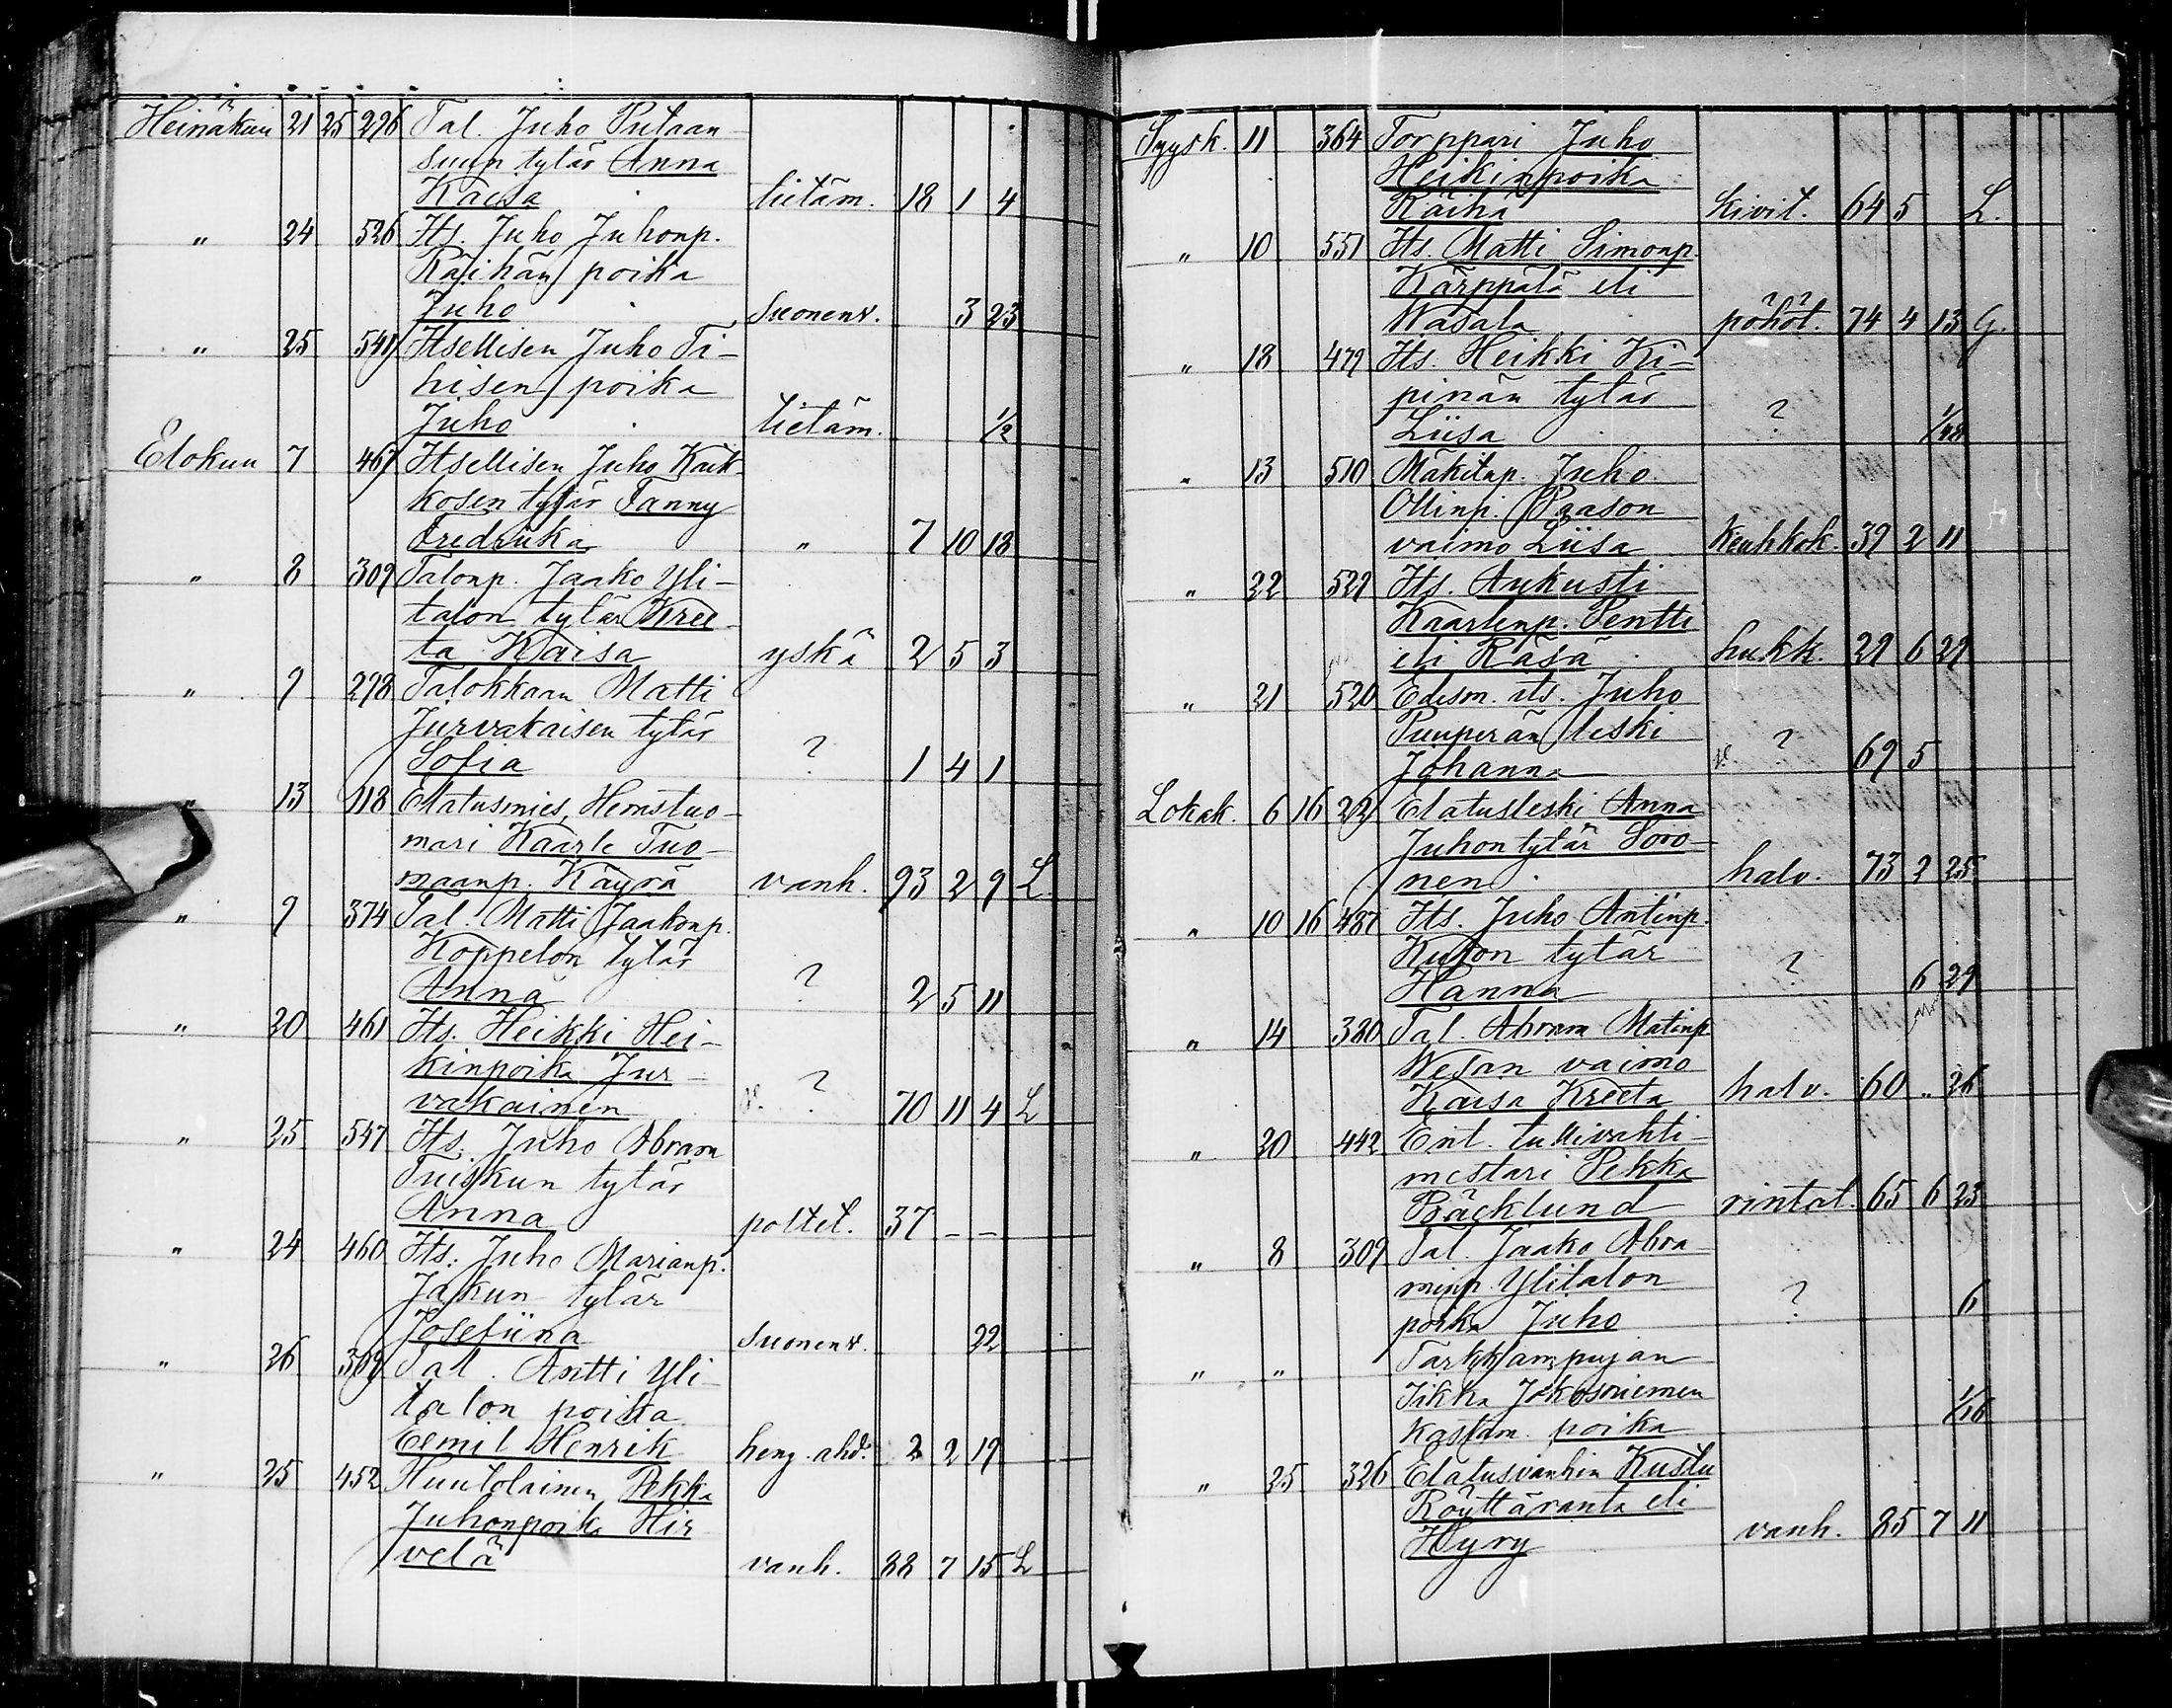 Heinäkun 21 25 296 Tal. Juho Putaan-
suun tytär Anna
Kaisa tietäm. 18 1 4
" 24 526 Its. Juho Juhonp.
Räihän poika
Juho Suonenv. 3 23
" 25 541 Itsellisen Juho Ti-
hisen poika
Juho tietäm. 1/2
Elokun 7 467 Itsellisen Juho Kauk-
kosen tytär Fanny
Fredriika " 7 10 18
" 8 309 Talonp. Jaako Yli-
talon tytär Kree-
ta Kaisa yskä 2 5 3
" 9 298 Talokkaan Matti
Jurvakaisen tytär
Sofia ? 1 4 1
" 13 118 Elatusmies, Hemstuo-
mari Kaarle Tuo-
maanp. Käyrä vanh. 93 2 9 L
" 9 374 Tal. Matti Jaakonp.
Koppelon tytär
Anna ? 2 5 11
" 20 461 Its. Heikki Hei-
kinpoika Jur-
vakainen ? 70 11 4 L
" 25 547 Its. Juho Abram
Tuiskun tytär
Anna poltet. 37 - -
" 24 460 Its. Juho Marianp.
Jakun tytär
Josefiina Suonenv. 22
" 26 309 Tal. Antti Yli-
talon poika
Eemil Henrik heng. ahd. 2 2 19
" 25 452 Huutolainen Pekka
Juhonpoika Hir-
velä vanh. 88 7 15 L
Syysk. 11 364 Torppari Juho
Heikinpoika
Räihä Kivit. 64 5 L.
" 10 551 Its. Matti Simonp.
Kärppälä eli
Wasala pöhöt. 74 4 13 G.
" 18 479 Its. Heikki Ki-
pinän tytär
Liisa ? 1/48
" 13 510 Mäkitup. Juho
Ollinp. Paason
vaimo Liisa Keuhkok. 39 2 11
" 22 529 Its. Aukusti
Kaarlenp. Pentti
eli Räsä hukk. 29 6 29
" 21 520 Edesm. its. Juho
Puuperän leski
Johanna ? 69 5
Lokak. 6 16 22 Elatusleski Anna
Juhontytär Soro-
nen halv. 73 2 25
" 10 16 487 Its. Juho Antinp.
Kuton tytär
Hanna ? 6 29
" 14 380 Tal. Abram Matinp
Wesan vaimo
Kaisa Kreeta halv. 60 " 26
" 20 442 Ent. tullivahti-
mestari Pekka
Bäcklund rintat. 65 6 23
" 8 309 Tal. Jaako Abra-
minp. Ylitalon
poika Juho ? 6
" " Tarkkampujan
Iikka Jokosniemen
kastam. poika 1/16
" 25 326 Elatusvanhin Kustu
Röyttäranta eli
Hyry vanh. 85 7 11